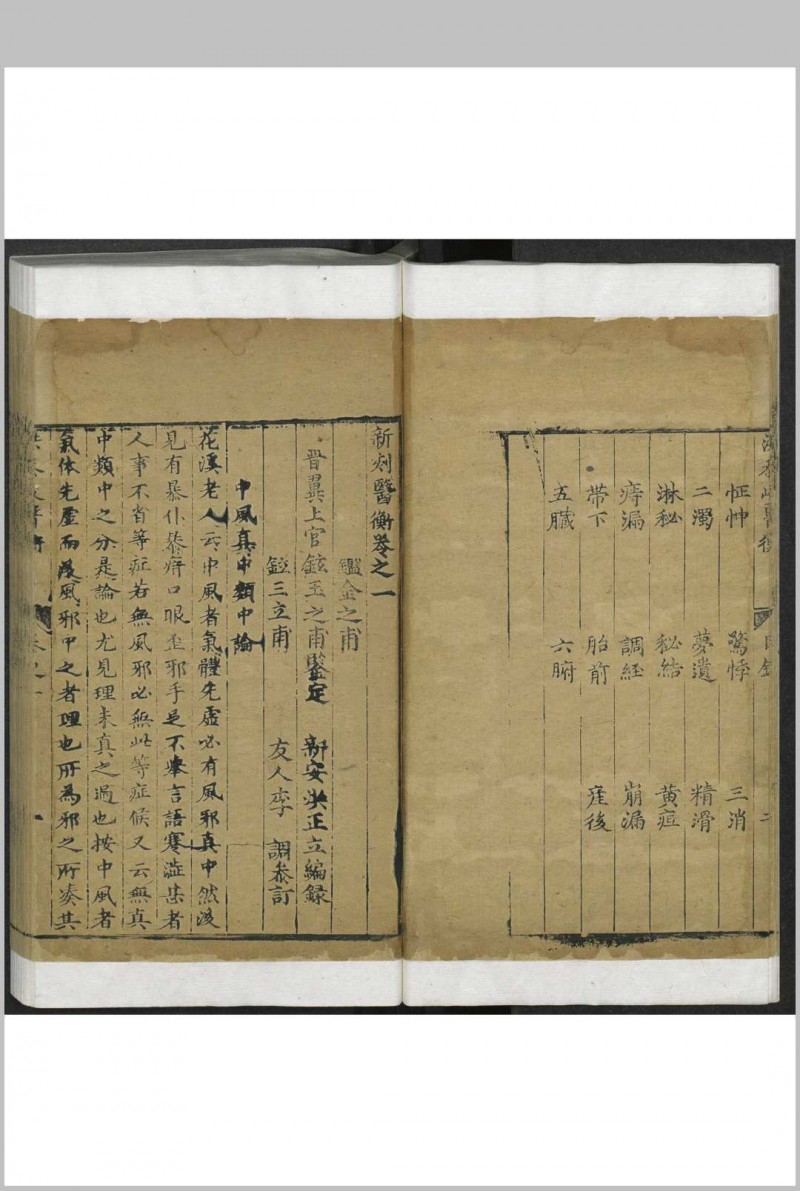 怔忡 驚悸 三消
二濁 夢遺 精滑
淋秘 秘結 黄疸
痔漏 調經 崩漏
帶下 胎前 産後
五臟 六腑
新刻醫衡卷之一
鑑金之甫
晋翼上官鉉玉之甫鑒定 新安洪正立編録
鉝三立甫 友人李 調叅訂
中風真中類中論
花溪老人云中風者氣體先虛必有風邪真中然後
見有暴仆暴瘖口眼歪邪手足不舉言語蹇澁甚者
人事不省等症若無風邪必無此等症候又云無真
中類中之分是論也尤見理未真之過也按中風者
氣体先虛而後風邪中之者理也所為邪之所凑其